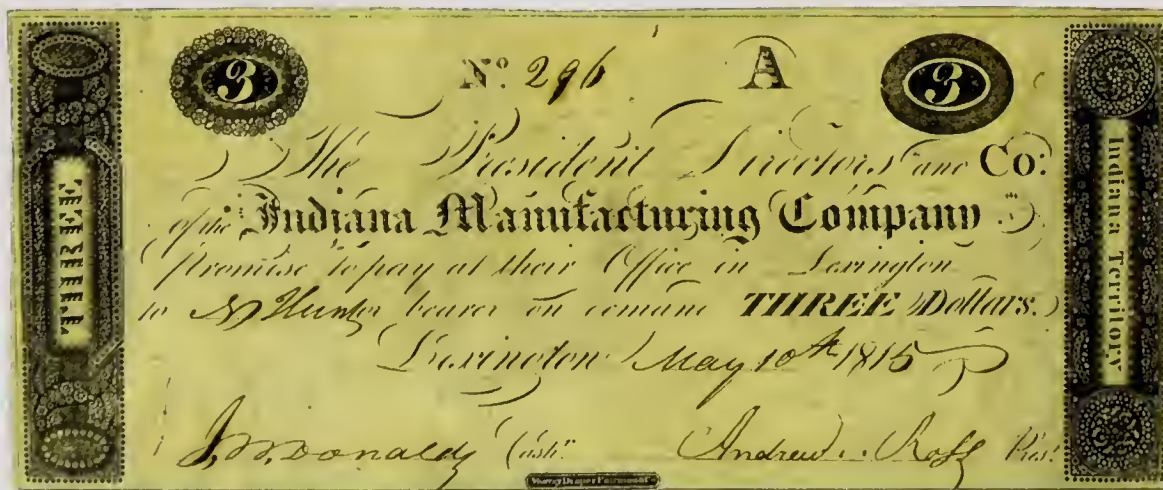 3 Nº 296 A 3
The President Directors and Co:
of the Indiana Manufacturing Company
Promise to pay at their Office in Lexington
to Hunter or bearer on demand THREE Dollars.
Lexington May 10th 1815
J. McDonald Cash.r Andrew Ross Pres.t
Murray Draper Fairman & Co
THREE
Indiana Territory